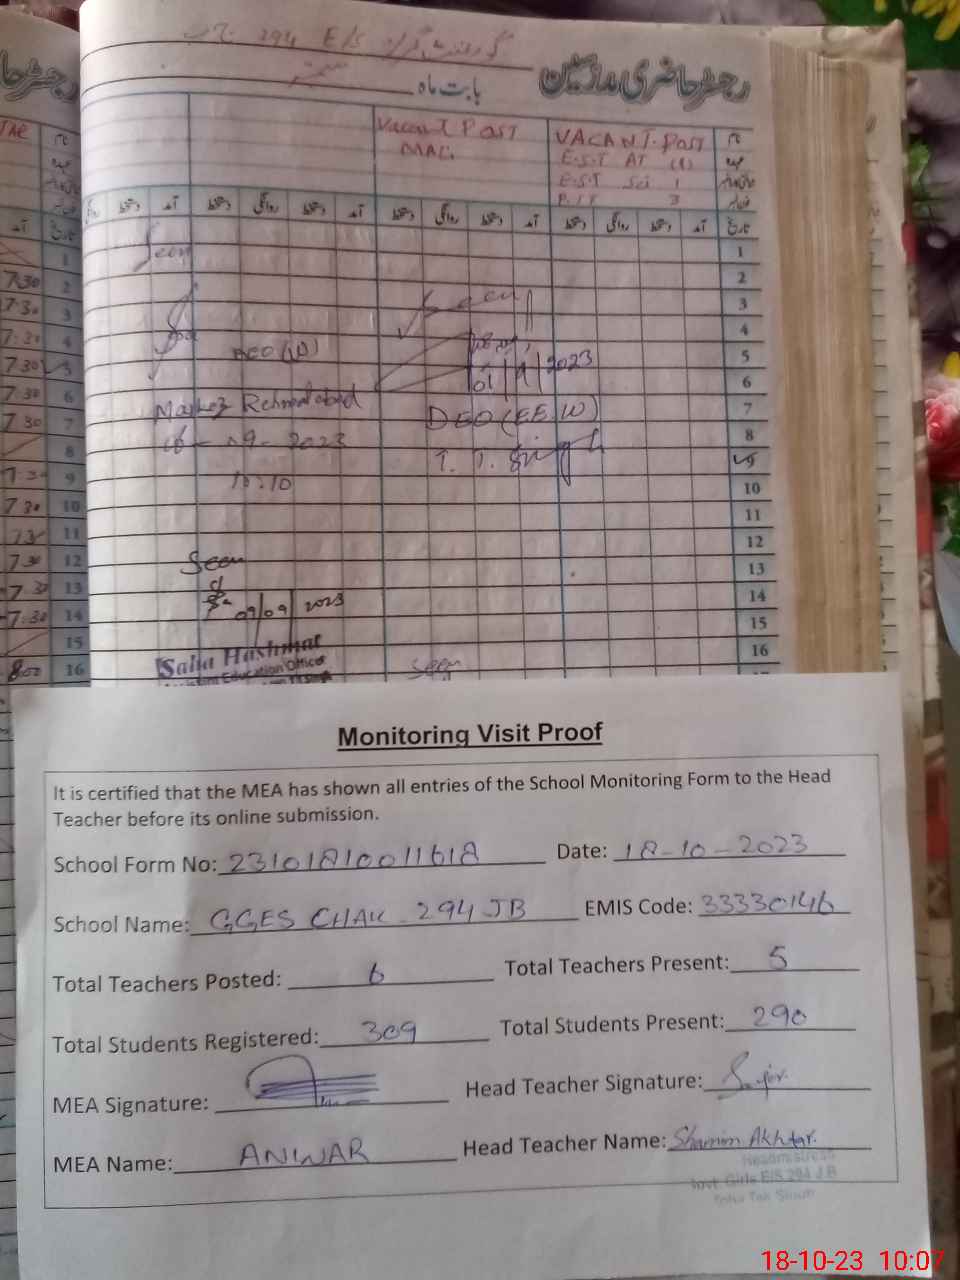 گورنمنٹ گرلز E/S 294 ج ب
رجسٹر حاضری مدرسین
بابت ماہ ستمبر
Vacant Post
VACANT. Post
E.S.T AT (1)
E.S.T Sci 1
3
نام
عہدہ
تاریخ آمد دستخط روانگی دستخط آمد دستخط روانگی دستخط آمد دستخط روانگی دستخط آمد دستخط روانگی
Seen
1
2
3
4
5
6
7
8
9
10
11
12
13
14
15
16
Seen
01/9/2023
DEO (EE.W)
T. T. Singh
AEO (W)
Markaz Rehmatabad
16-09-2023
10:10
Seen
09/09/2023
Saha Hashmat
Assistant Education Officer
Seen
7:30
7:30
7:30
7:30
7:30
7:30
7:30
7:30
7:30
7:30
7:30
8:00
1
2
3
4
5
6
7
8
9
10
11
12
13
14
15
16
Monitoring Visit Proof
It is certified that the MEA has shown all entries of the School Monitoring Form to the Head
Teacher before its online submission.
School Form No: 23101810011618 Date: 18-10-2023
School Name: GGES CHAK 294 JB EMIS Code: 33330146
Total Teachers Posted: 6 Total Teachers Present: 5
Total Students Registered: 309 Total Students Present: 290
MEA Signature: Head Teacher Signature:
MEA Name: ANWAR Head Teacher Name: Shamim Akhtar.
Headmistress
Govt. Girls E/S 294 J.B
Toba Tek Singh
18-10-23 10:07